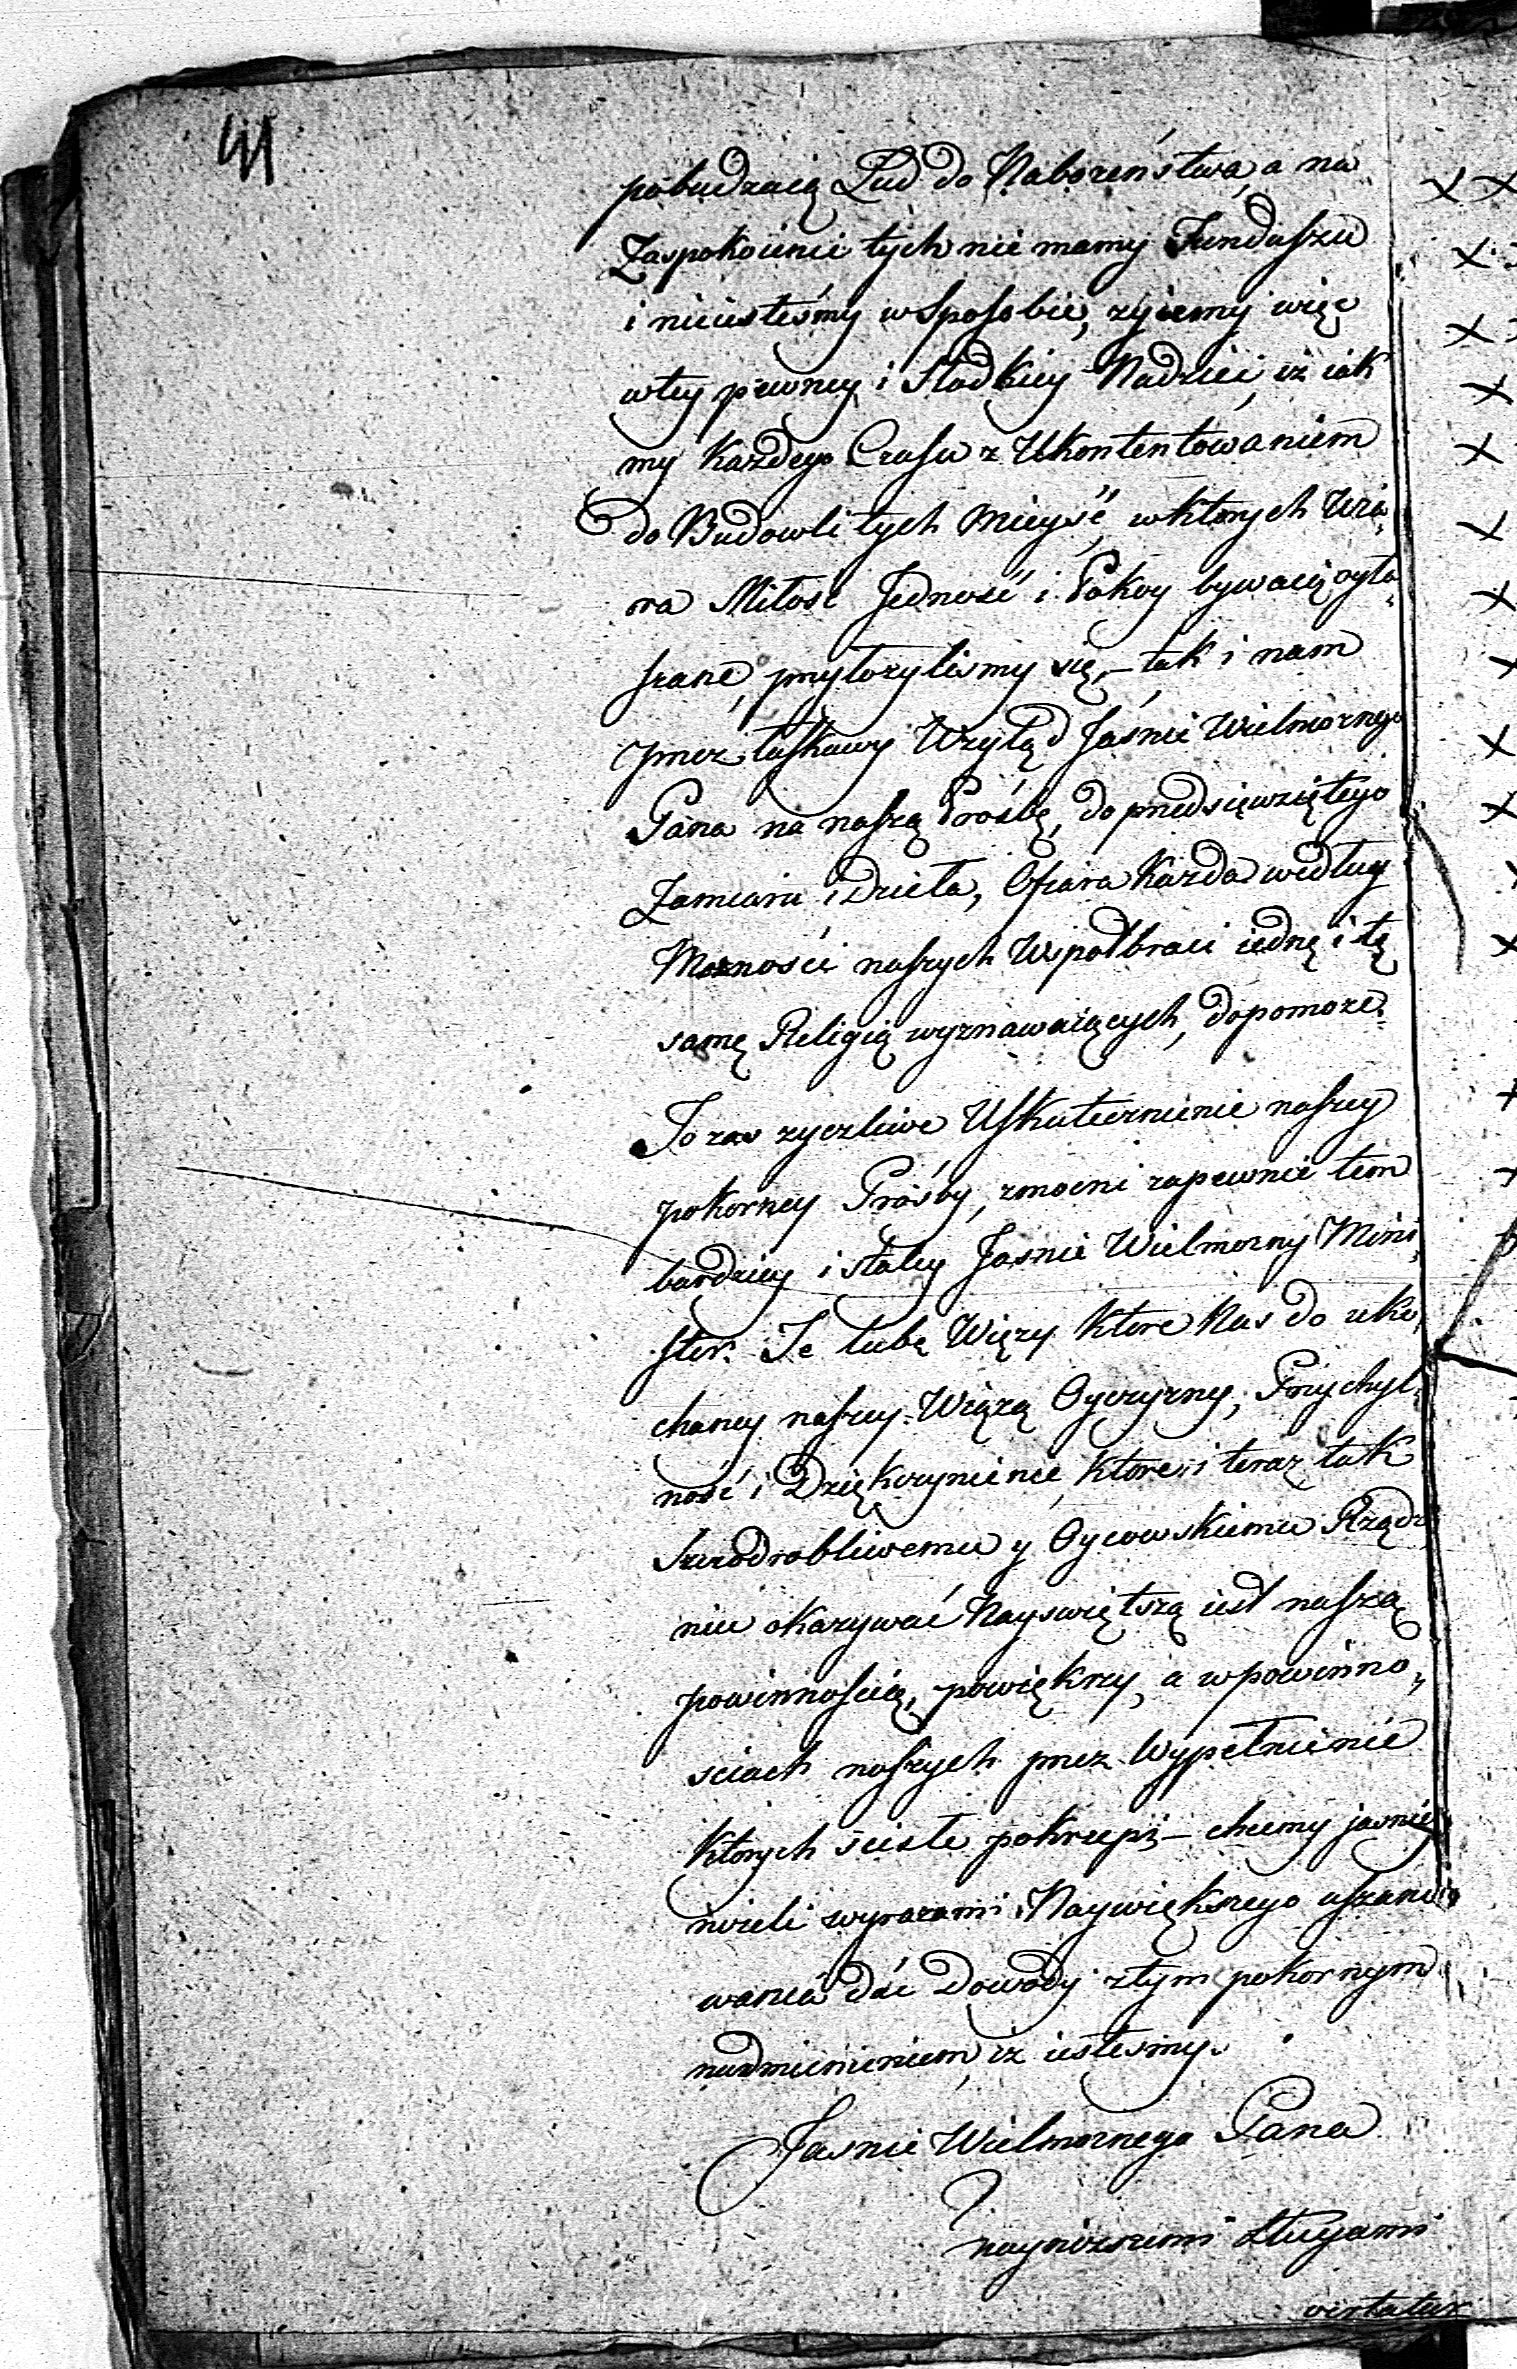 pobudzaią Lud do Nabozeństwa, a na
Zaspokoienie tych nie mamy Funduszu
i nieiesteśmy w Sposobie, zyiemy więc
w tey pewney i Słodkiey Nadziei, iż iak
my Każdego Czasu z Ukontentowaniem
do Budowli tych Mieysć w ktorych Wia„
ra Miłość Jedność i Pokoy bywaią ogła„
szane, przyłozyliśmy się, – tak i nam
przez łaskawy Wzgląd Jaśnie Wielmoznego
Pana na naszą Prośbę, do przedsięwziętego
Zamiaru i Dzieła, Ofiara Kazda według
Mozności naszych Wspołbraci iednę i tę
samę Religią wyznawaiących, dopomoze.
To zas zyczliwe Uskutecznienie naszey
pokorney Prośby, zmocni zapewnie tem
bardziey i staley Jasnie Wielmozny Mini„
ster. Te lube Więzy ktore Nas do uko„
chaney naszey Wiążą Oyczyzny, Przychyl„
ność i Dziękczynienie, ktore i teraz tak
szczodrobliwemu y Oycowskiemu Rządo„
niu okazywać Nayswiętszą iest naszą
powinnością, powiękrzy, a w powinno„
sciach naszych przez Wypełnienie
ktorych sciśle pokrzepi – chcemy jasniey
nizeli wyrazami Naywiększego uszano„
wania dać Dowody z tym pokornym
nadmienieniem, iż iestesmy.
Jasnie Wielmoznego Pana
nayniższemi sługami
vertatur